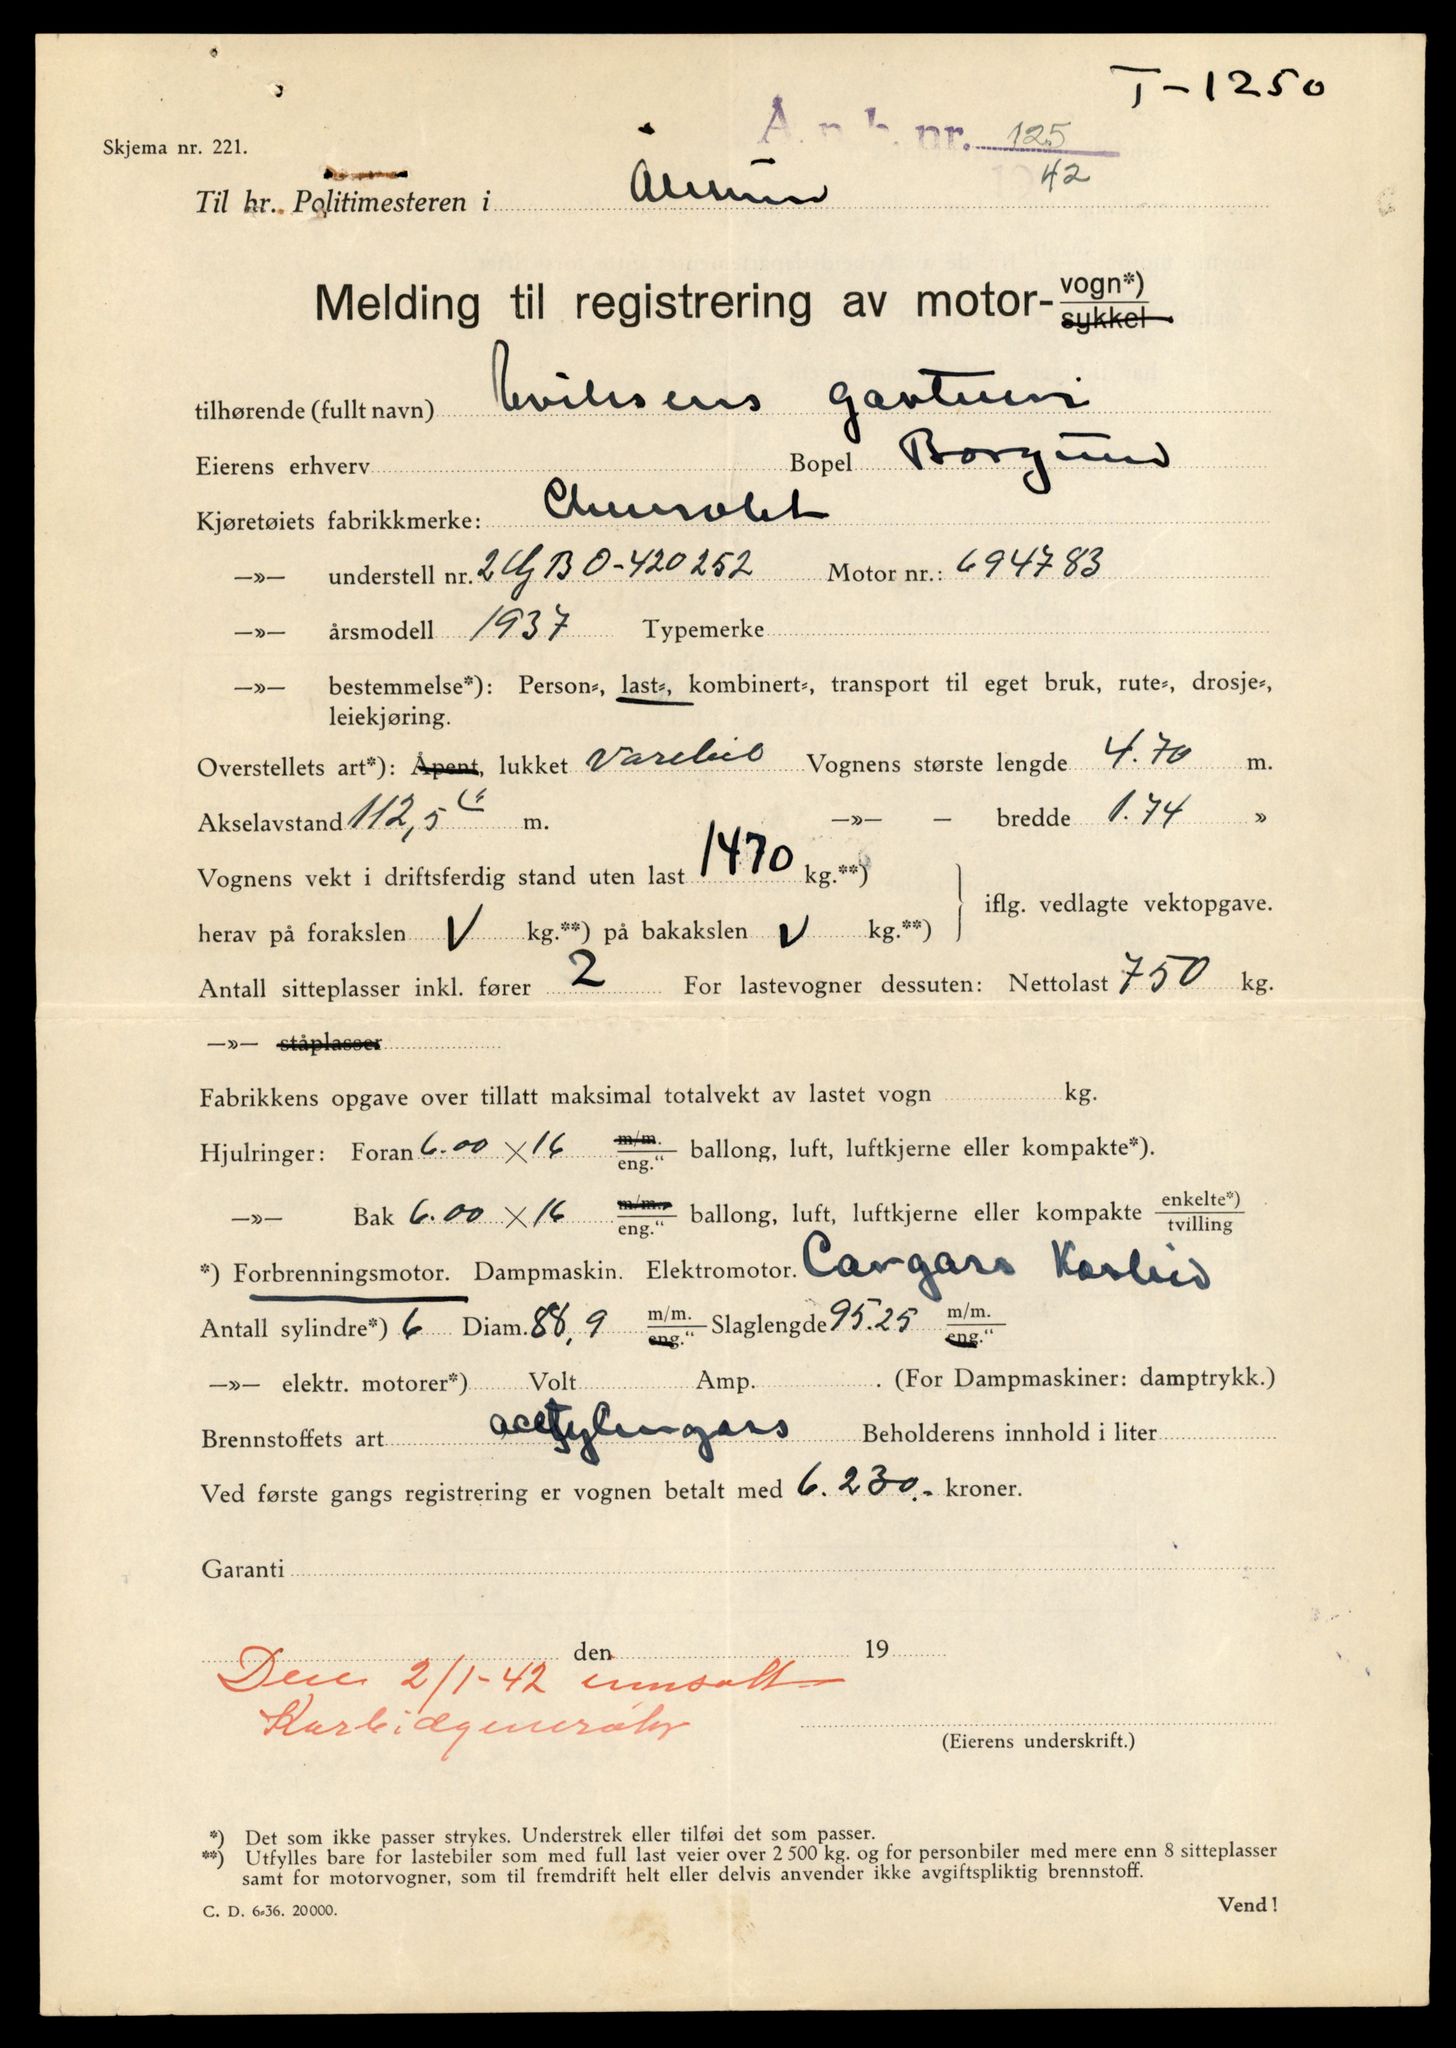 T-1250
Skjema nr. 221.
A. nr. 125
42
Til hr. Politimesteren i Ålesund
Melding til registrering av motor- vogn*)
sykkel
tilhørende (fullt navn) gartneri
Eierens erhverv Bopel Borgund
Kjøretøiets fabrikkmerke: Chevrolet
—»— understell nr. 2 GB 0-420252 Motor nr.: 694783
—»— årsmodell 1937 Typemerke
—»— bestemmelse*): Person-, last-, kombinert-, transport til eget bruk, rute-, drosje-,
leiekjøring.
Overstellets art*): Åpent, lukket Varebil Vognens største lengde 4.70 m.
Akselavstand 112,5" m. —»— — bredde 1.74 »
Vognens vekt i driftsferdig stand uten last 1470 kg.**)
iflg. vedlagte vektopgave.
herav på forakslen V kg.**) på bakakslen V kg.**)
Antall sitteplasser inkl. fører 2 For lastevogner dessuten: Nettolast 750 kg.
—»— ståplasser
Fabrikkens opgave over tillatt maksimal totalvekt av lastet vogn kg.
Hjulringer: Foran 6.00 × 16 m/m. eng.“ ballong, luft, luftkjerne eller kompakte*).
—»— Bak 6.00 × 16 m/m. eng.“ ballong, luft, luftkjerne eller kompakte enkelte*) tvilling
*) Forbrenningsmotor. Dampmaskin. Elektromotor. Cargass Karbid
Antall sylindre*) 6 Diam. 88,9 m/m. eng.“ Slaglengde 95.25 m/m. eng.“
—»— elektr. motorer*) Volt Amp. . (For Dampmaskiner: damptrykk.)
Brennstoffets art acetylengass Beholderens innhold i liter
Ved første gangs registrering er vognen betalt med 6.230.- kroner.
Garanti
den 19
Den 2/1-42 innsatt
Karbidgenerator
(Eierens underskrift.)
*) Det som ikke passer strykes. Understrek eller tilføi det som passer.
**) Utfylles bare for lastebiler som med full last veier over 2 500 kg. og for personbiler med mere enn 8 sitteplasser
samt for motorvogner, som til fremdrift helt eller delvis anvender ikke avgiftspliktig brennstoff.
C. D. 6-36. 20000.
Vend!